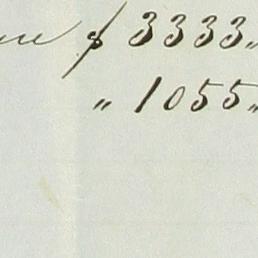 $ 3333 "
" 1055 "